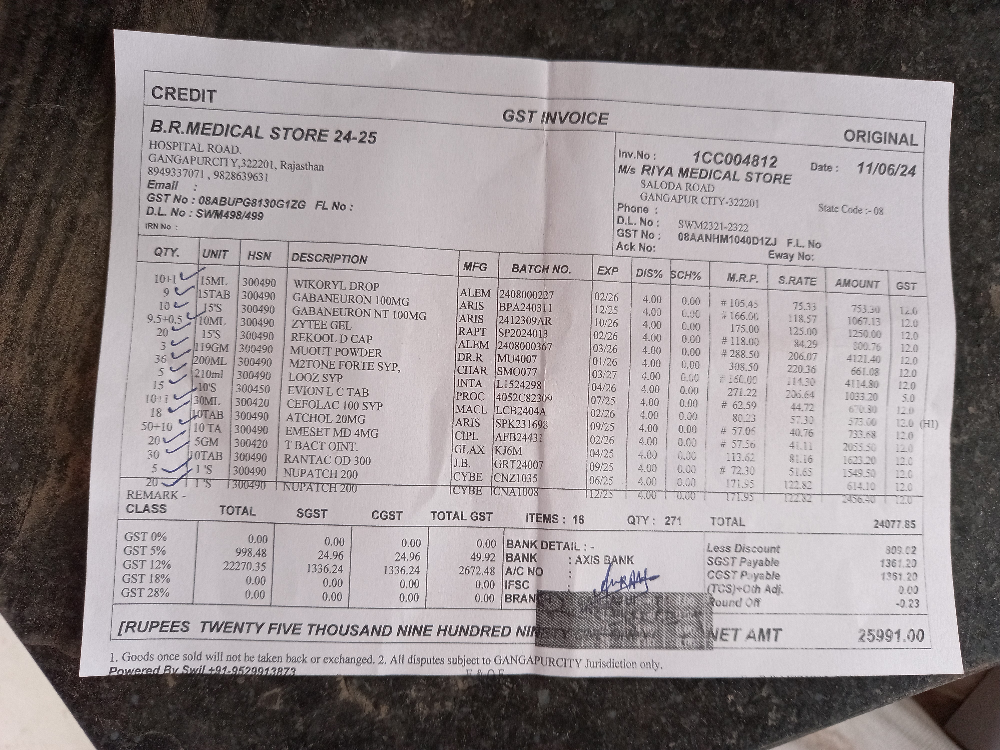 CREDIT
GST INVOICE
ORIGINAL
B.R.MEDICAL STORE 24-25
HOSPITAL ROAD.
GANGAPURCITY,322201, Rajasthan
8949337071 , 9828639631
Email :
GST No : 08ABUPG8130G1ZG FL No :
D.L. No : SWM498/499
IRN No :
Inv.No : 1CC004812 Date : 11/06/24
M/s RIYA MEDICAL STORE
SALODA ROAD
GANGAPUR CITY-322201
Phone : State Code :- 08
D.L. No : SWM2321-2322
GST No : 08AANHM1040D1ZJ F.L. No
Ack No: Eway No:
QTY. UNIT HSN DESCRIPTION MFG BATCH NO. EXP DIS% SCH% M.R.P. S.RATE AMOUNT GST
10+1 15ML 300490 WIKORYL DROP ALEM 2408000227 02/26 4.00 0.00 # 105.45 75.33 753.30 12.0
9 15TAB 300490 GABANEURON 100MG ARIS BPA240311 12/25 4.00 0.00 # 166.00 118.57 1067.13 12.0
10 15'S 300490 GABANEURON NT 100MG ARIS 2412309AR 10/26 4.00 0.00 175.00 125.00 1250.00 12.0
9.5+0.5 10ML 300490 ZYTEE GEL RAPT SP2024013 02/26 4.00 0.00 # 118.00 84.29 800.76 12.0
20 15'S 300490 REKOOL D CAP ALEM 2408000367 03/26 4.00 0.00 # 288.50 206.07 4121.40 12.0
3 119GM 300490 MUOUT POWDER DR.R MU4007 01/26 4.00 0.00 308.50 220.36 661.08 12.0
36 200ML 300490 M2TONE FORTE SYP, CHAR SMO077 03/27 4.00 0.00 # 160.00 114.30 4114.80 12.0
5 210ml 300490 LOOZ SYP INTA L1524298 04/26 4.00 0.00 271.22 206.64 1033.20 5.0
15 10'S 300450 EVION LC TAB PROC 07/25 4.00 0.00 # 62.59 44.72 670.80 12.0
10+1 30ML 300420 CEFOLAC 100 SYP MACL LCB2404A 02/26 4.00 0.00 80.23 57.30 573.00 12.0 (H1)
18 10TAB 300490 ATCHOL 20MG ARIS 09/25 4.00 0.00 # 57.05 40.76 733.68 12.0
50+10 10 TA 300490 EMESET MD 4MG CIPL 02/26 4.00 0.00 # 57.56 41.11 2055.50 12.0
20 5GM 300420 T BACT OINT. GLAX KJ6M 04/25 4.00 0.00 113.62 81.16 1623.20 12.0
30 10TAB 300490 RANTAC OD 300 J.B. GRT24007 09/25 4.00 0.00 # 72.30 51.65 1549.50 12.0
5 1'S 300490 NUPATCH 200 CYBE CNZ1035 06/25 4.00 0.00 171.95 122.82 614.10 12.0
20 1'S 300490 NUPATCH 200 CYBE CNA1008 12/25 4.00 0.00 171.95 122.82 2456.40 12.0
REMARK -
CLASS TOTAL SGST CGST TOTAL GST ITEMS : 16 QTY : 271 TOTAL 24077.85
GST 0% 0.00 0.00 0.00 0.00
GST 5% 998.48 24.96 24.96 49.92
GST 12% 22270.35 1336.24 1336.24 2672.48
GST 18% 0.00 0.00 0.00 0.00
GST 28% 0.00 0.00 0.00 0.00
BANK DETAIL : -
BANK : AXIS BANK
A/C NO :
IFSC :
BRAN
Less Discount 809.02
SGST Payable 1361.20
CGST Payable 1361.20
(TCS)+Oth Adj. 0.00
Round Off -0.23
[RUPEES TWENTY FIVE THOUSAND NINE HUNDRED
NET AMT 25991.00
1. Goods once sold will not be taken back or exchanged. 2. All disputes subject to GANGAPURCITY Jurisdiction only.
Powered By Swil +91-9529913873 E.&O.E